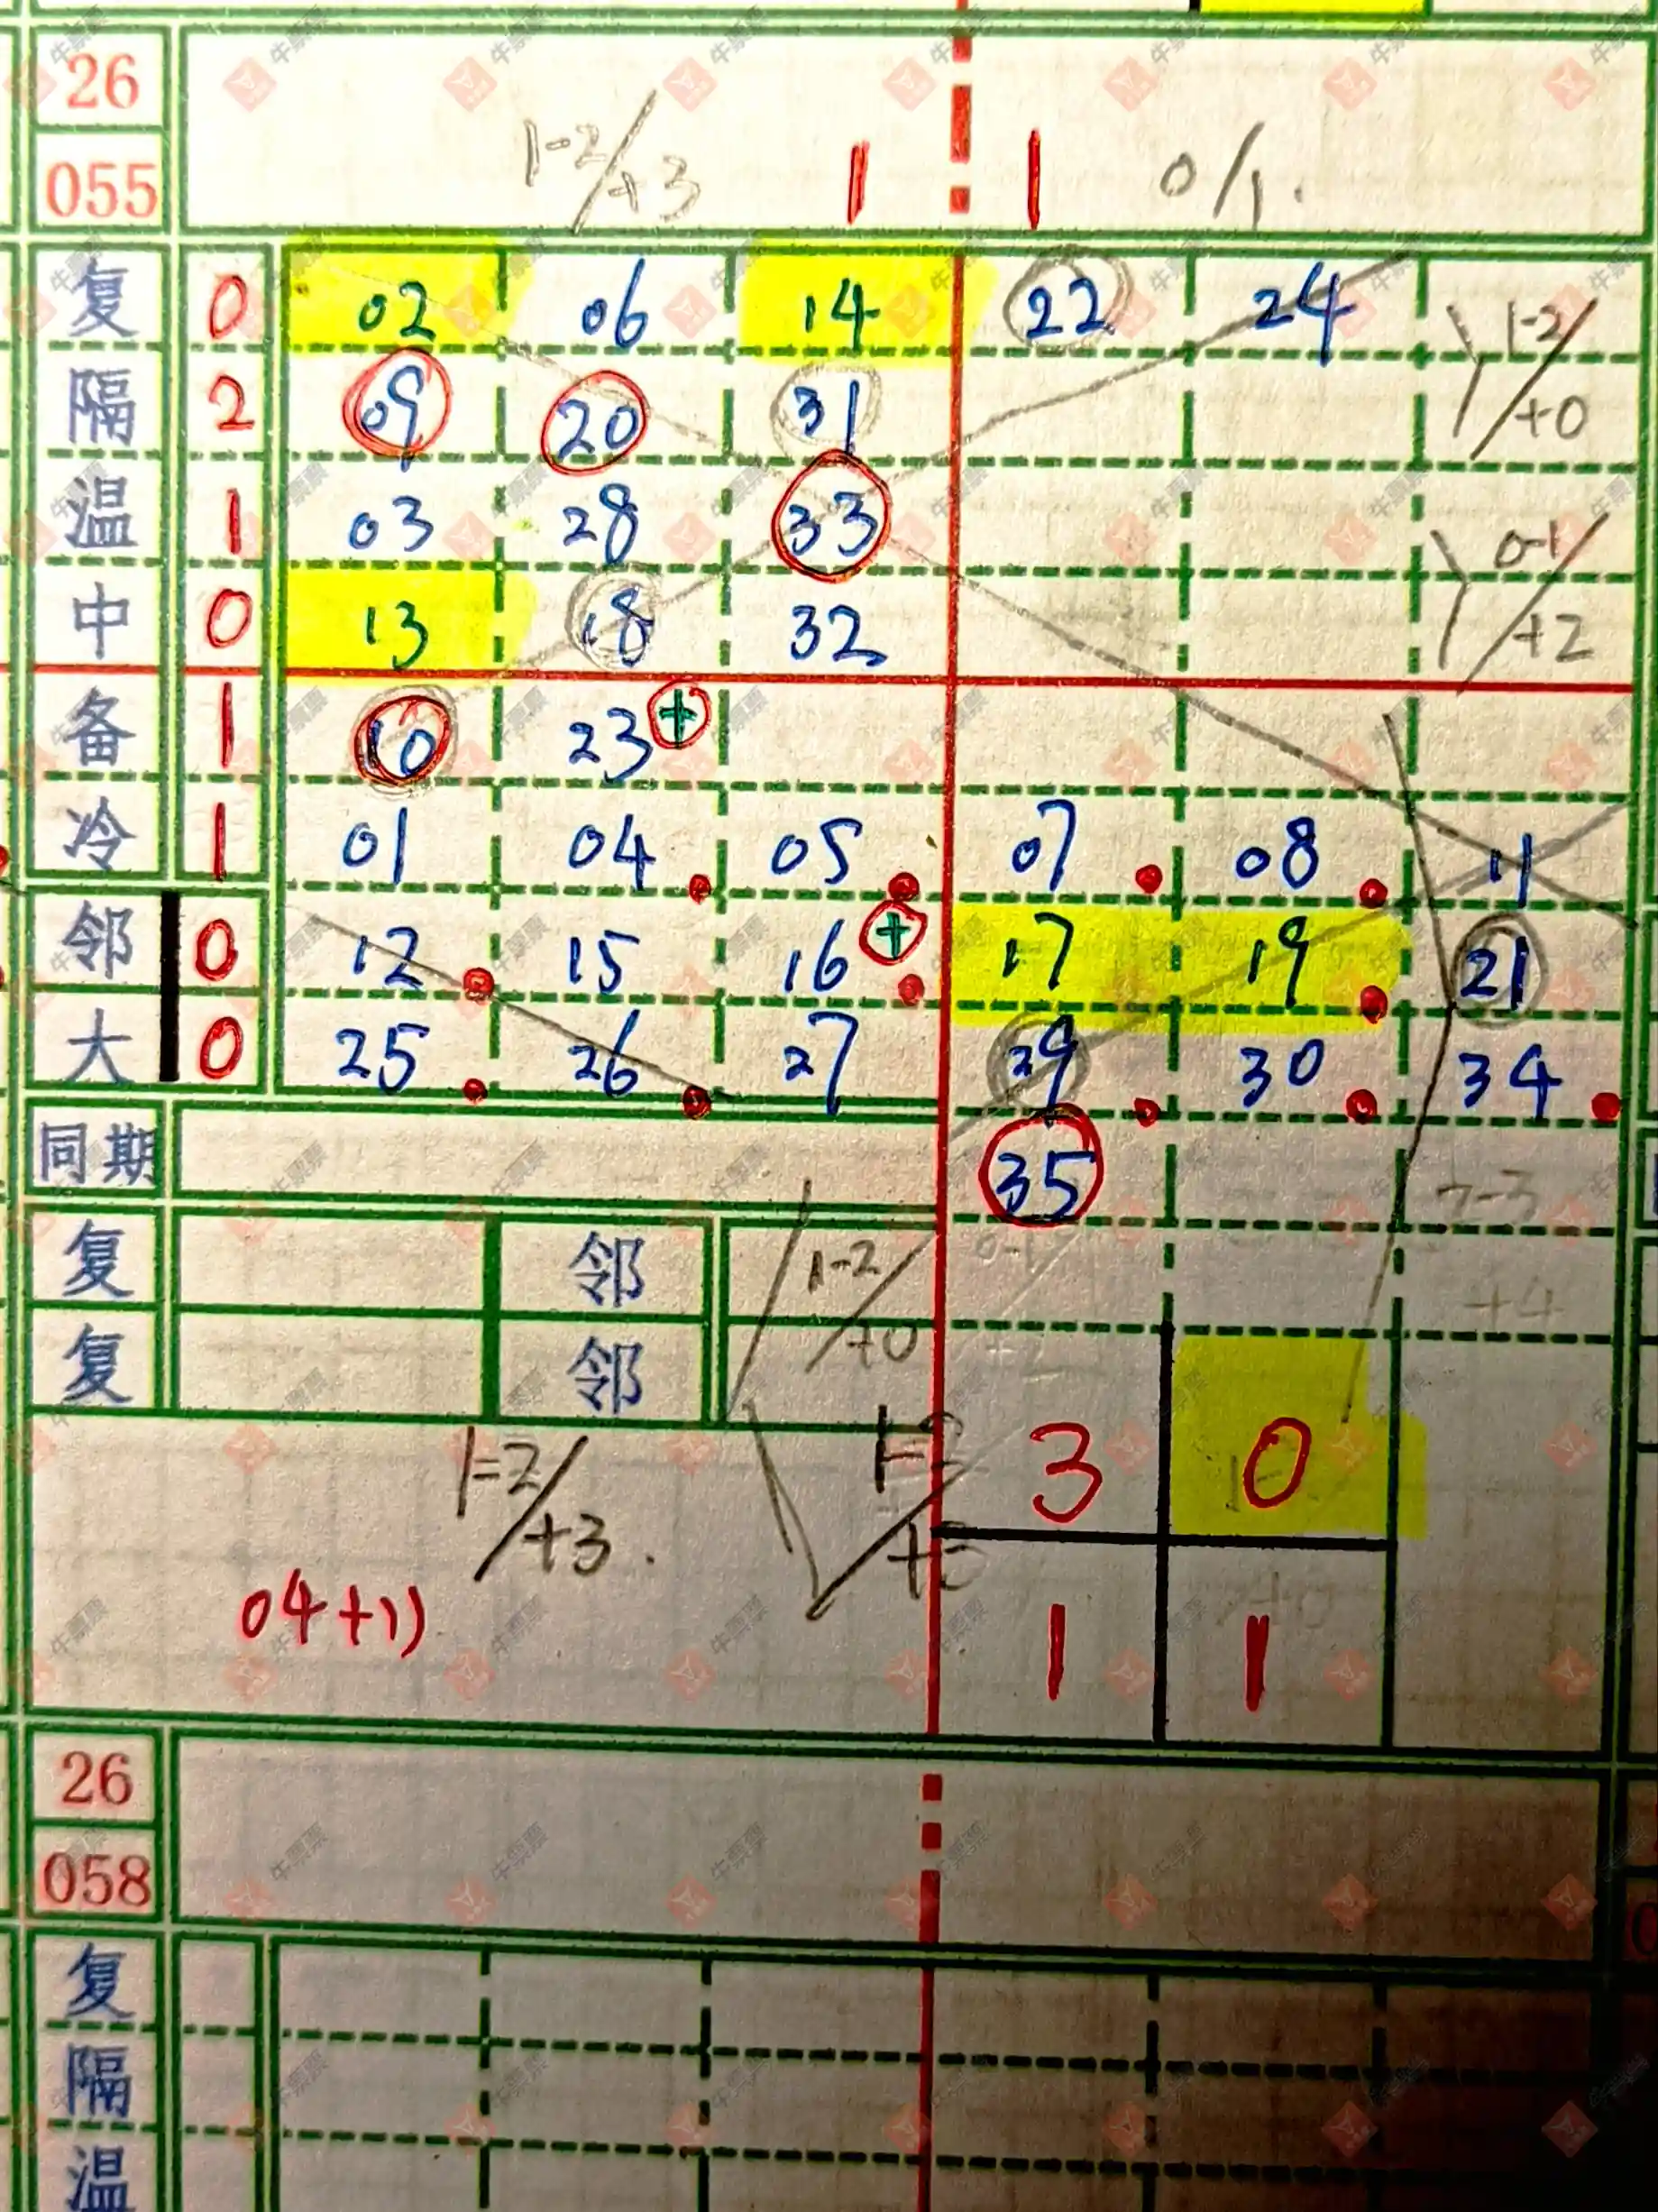 26
055 1-2/+3 1 1 0/1.
复 0 02 06 14 22 24 1-2/+0
隔 2 09 20 31
温 1 03 28 33 0-1/+2
中 0 13 18 32
备 1 10 23 +
冷 1 01 04 05 07 08 11
邻 0 12 15 16 + 17 19 21
大 0 25 26 27 29 30 34
同期 35
复 邻 1-2/+0 +4
复 邻
1=2/+3. 3 0
04+11 1 1
26
058
复
隔
温